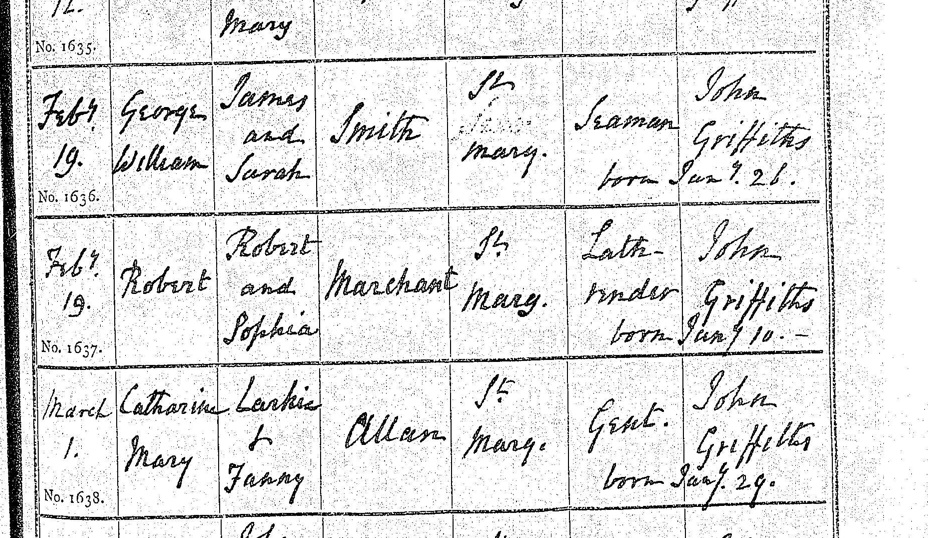 12.
Mary
No. 1635.
Feby. 19.
No. 1636.
George William
James and Sarah
Smith
St Marg.
Seaman
born Jany. 26.
John Griffiths
Feby. 19.
No. 1637.
Robert
Robert and Sophia
Marchant
St Marg.
Lath-render
born Jany 10.-
John Griffiths
March 1.
No. 1638.
Catharine Mary
Larkin & Fanny
Allan
St Marg.
Gent.
born Jany. 29.
John Griffiths
John